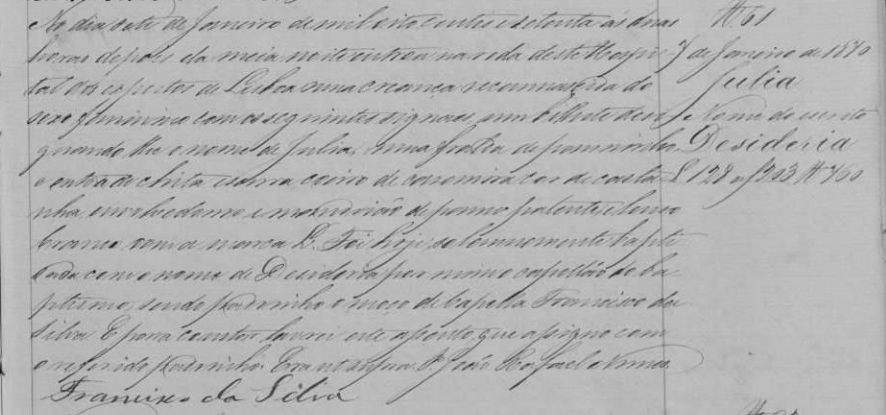 No dia sete de Janeiro de mil oito centos e setenta ás duas
horas depois da meia noite entrou na roda deste Hospi
tal dos expostos de Lisboa uma creança recemnascida do
sexo feminino com os seguintes signaes, um bilhete
o nome de Julia, uma fralda de panninho
e outra de chita, um coeiro de casemira côr de casta
nha, envolvedouro e de panno patente, e lenço
branco com a marca L. Foi hoje solemnemente bapti
sada com o nome de Desideria por mim o capellão do ba
ptismo, sendo padrinho o moço da Capella Francisco da
Silva. E para constar lavrei este assento que assigno com
o referido padrinho. Era ut supra. P. João Rafael
Francisco da Silva
Nº 61
7 de Janeiro de 1870
Julia
Nome de escrito
Desideria
L 128 af 203 Nº 760